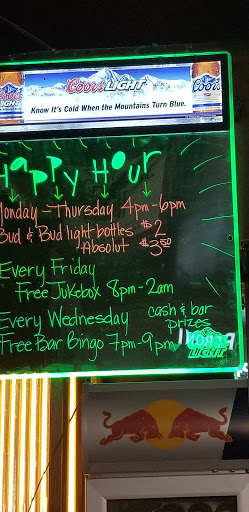 Coors LIGHT
Know It's Cold When the Mountains Turn Blue.
Coors
LIGHT
HAppy Hour
Monday - Thursday 4pm-6pm
Bud & Bud light bottles $2
Absolut $3.50
Every Friday
Free Jukebox 8pm-2am
Every Wednesday cash & bar prizes
Free Bar Bingo 7pm-9pm
LIGHT